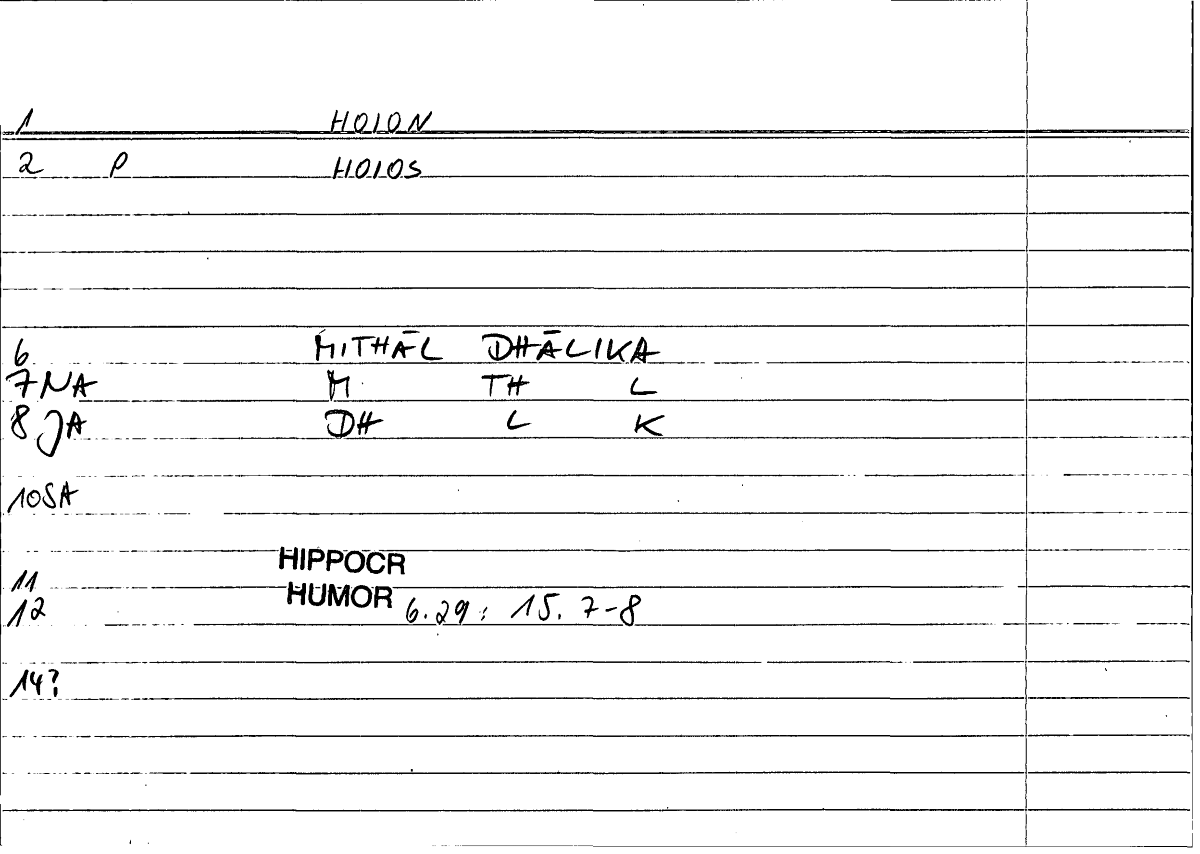 1 HOION
2 P HOIOS
6 MITHĀL DHĀLIKA
7 NA M TH L
8 JA DH L K
10 SA
HIPPOCR
11
HUMOR 6.29: 15. 7-8
12
14?